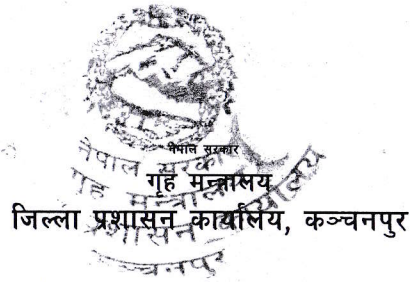 नेपाल सरकार
गृह मन्त्रालय
जिल्ला प्रशासन कार्यालय, कञ्चनपुर
नेपाल सरकार
गृह मन्त्रालय
प्रशासन कार्यालय
कञ्चनपुर